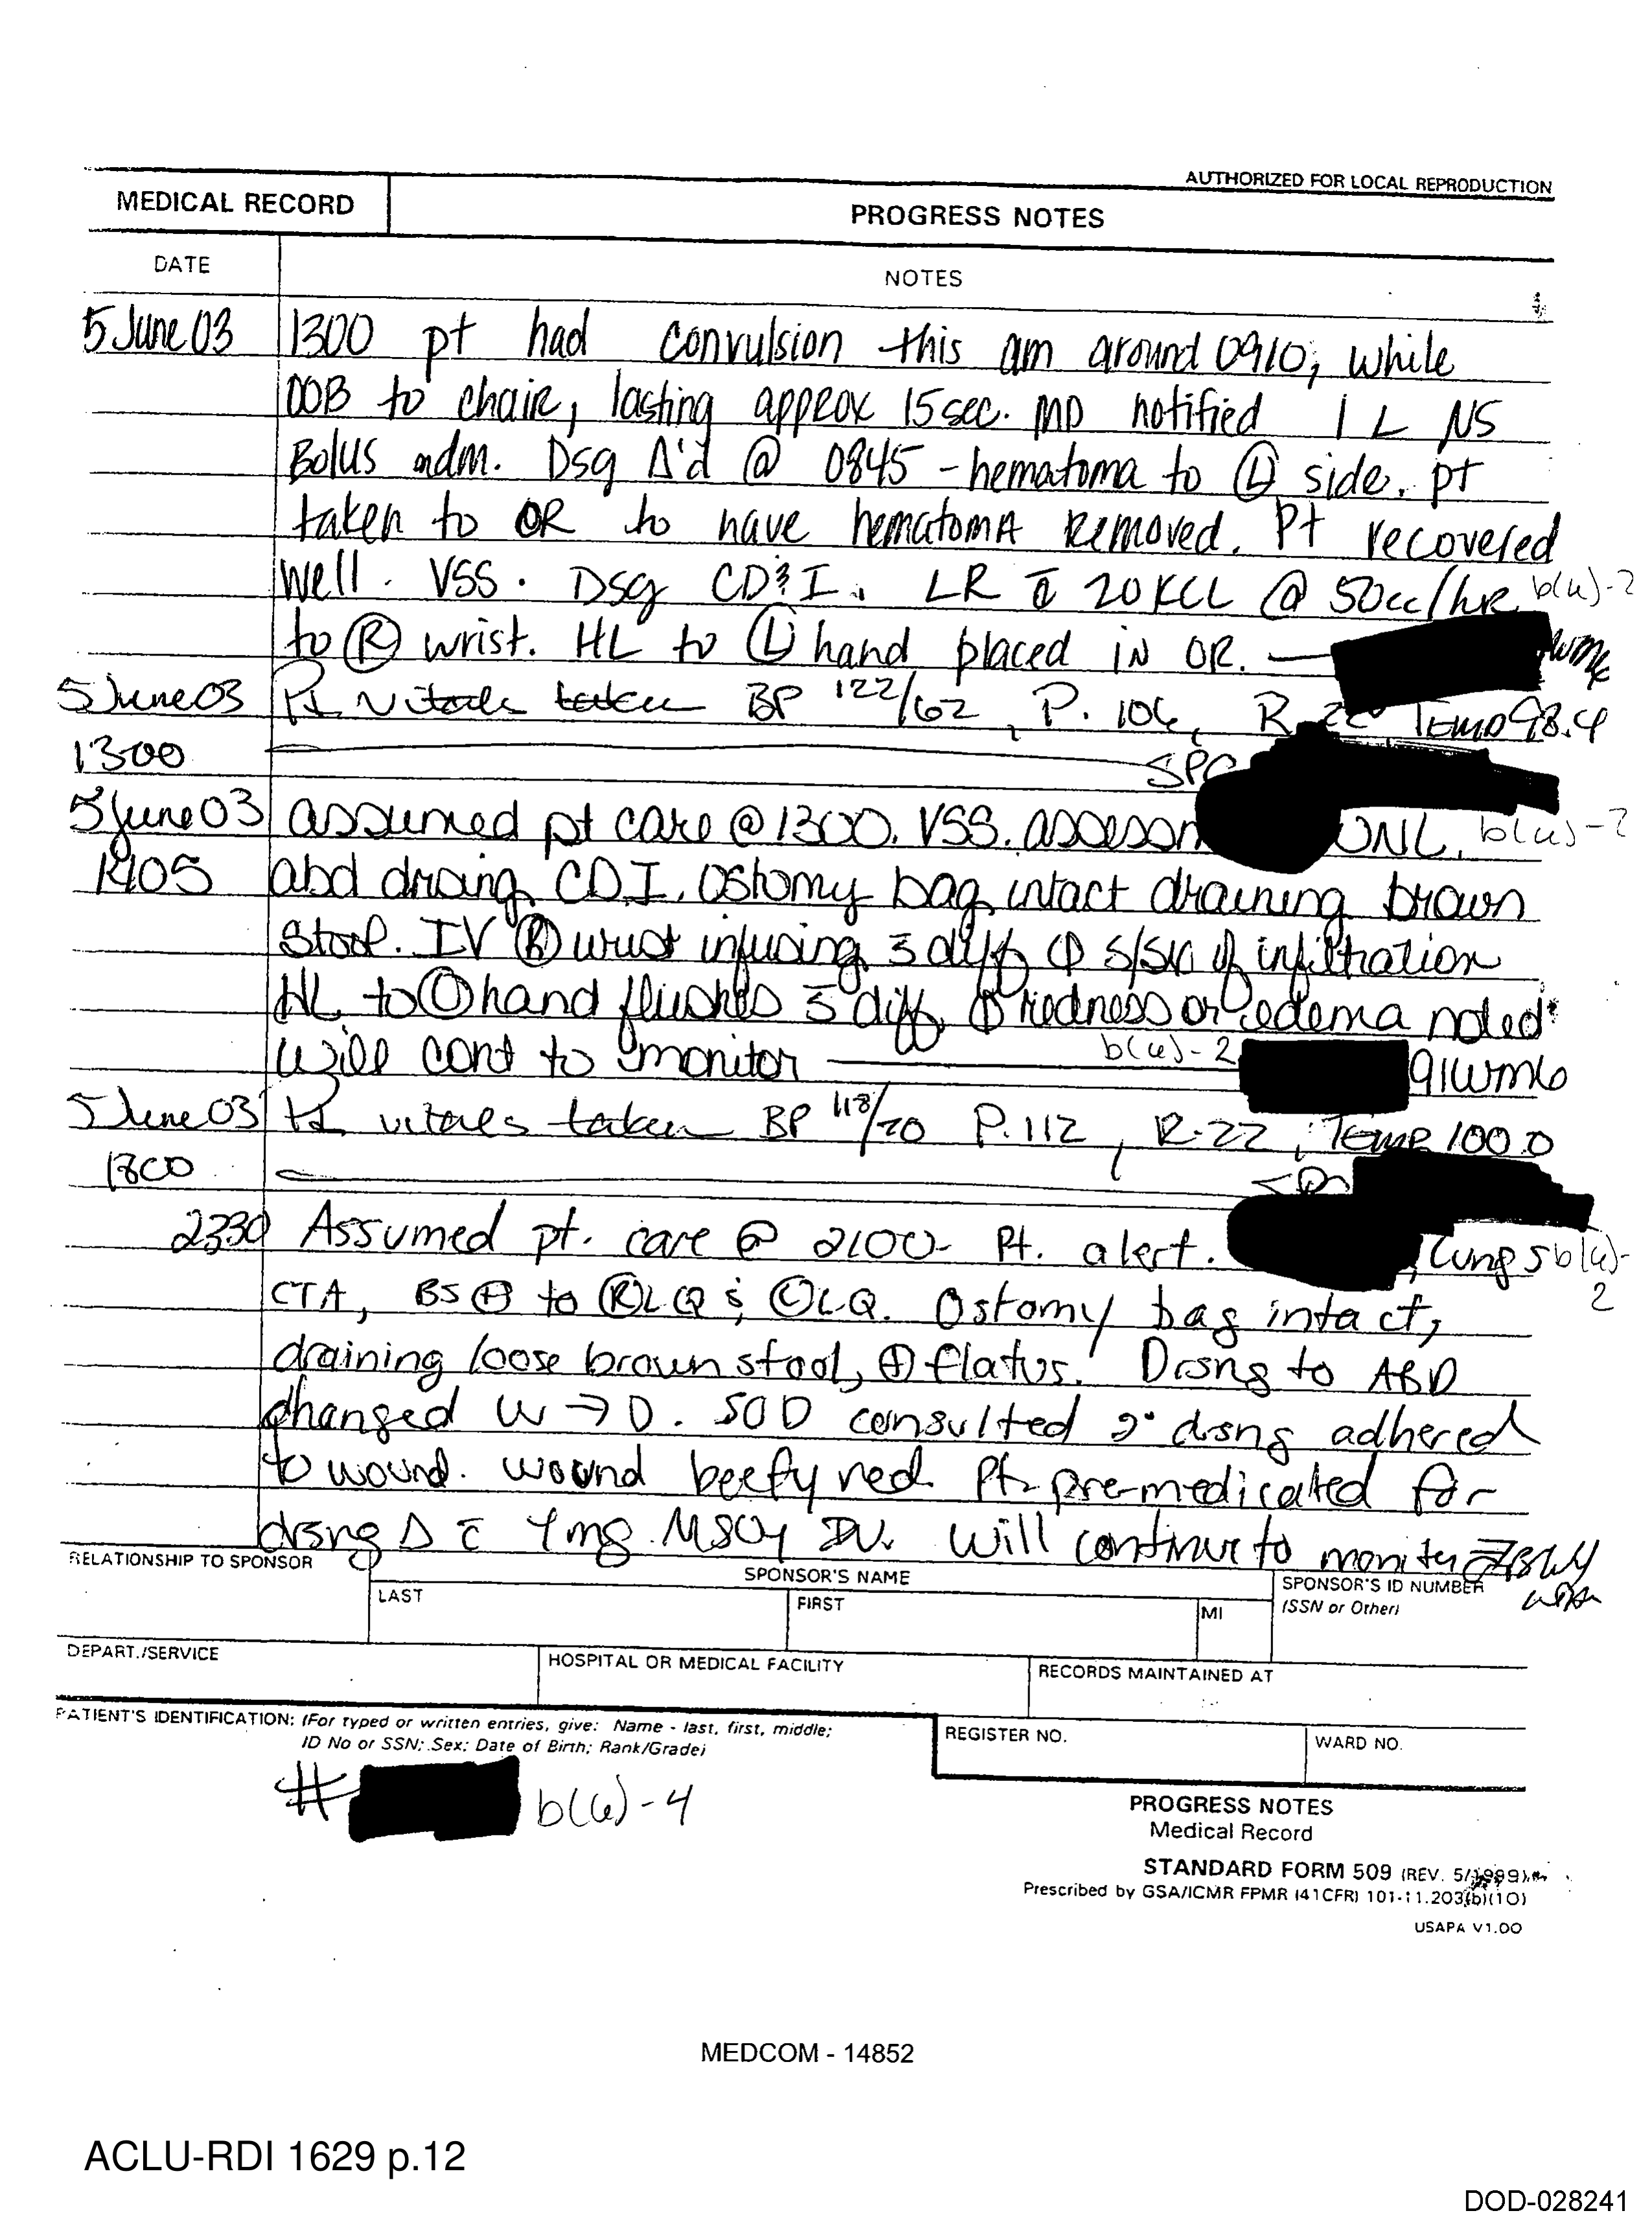 AUTHORIZED FOR LOCAL REPRODUCTION
MEDICAL RECORD PROGRESS NOTES
DATE NOTES
5 June 03 1300 pt had convulsion this am around 0910, while
OOB to chair, lasting approx 15 sec. MD notified 1 L NS
Bolus adm. Dsg Δ'd @ 0845 - hematoma to Ⓛ side. pt
taken to OR to have hematoma removed. Pt recovered
well. VSS. Dsg CD&I. LR c̄ 20 KCL @ 50cc/hr b(6)-2
to Ⓡ wrist. HL to Ⓛ hand placed in OR.
5 June 03 Pt. vitals taken BP 122/62, P. 106, R Temp 98.4
1300 SPC
5 June 03 assumed pt care @ 1300. VSS. WNL. b(6)-2
1405 abd drsing CDI. Ostomy bag intact draining brown
stool. IV Ⓡ wrist infusing s̄ diff ∅ s/sx of infiltration
HL to Ⓛ hand flushes s̄ diff ∅ redness or edema noted
will cont to monitor b(6)-2 91WM6
5 June 03 Pt vitals taken BP 118/70 P. 112, R-22, Temp 100.0
1800
2330 Assumed pt. care @ 2100. Pt. alert. , lungs b(6)-2
CTA, BS ⊕ to ⓇLQ & ⓁLQ. Ostomy bag intact,
draining loose brown stool, ⊕ flatus. Drsng to ABD
changed W → D. SOD consulted 2° drsng adhered
to wound. wound beefy red. Pt. pre-medicated for
drsng Δ c̄ 4mg MSO4 IV. Will continue to monitor
RELATIONSHIP TO SPONSOR SPONSOR'S NAME SPONSOR'S ID NUMBER
LAST FIRST MI (SSN or Other)
DEPART./SERVICE HOSPITAL OR MEDICAL FACILITY RECORDS MAINTAINED AT
PATIENT'S IDENTIFICATION: (For typed or written entries, give: Name - last, first, middle;
ID No or SSN; Sex; Date of Birth; Rank/Grade)
REGISTER NO. WARD NO.
# b(6)-4
PROGRESS NOTES
Medical Record
STANDARD FORM 509 (REV. 5/1999)
Prescribed by GSA/ICMR FPMR (41CFR) 101-11.203(b)(10)
USAPA V1.00
MEDCOM - 14852
ACLU-RDI 1629 p.12
DOD-028241